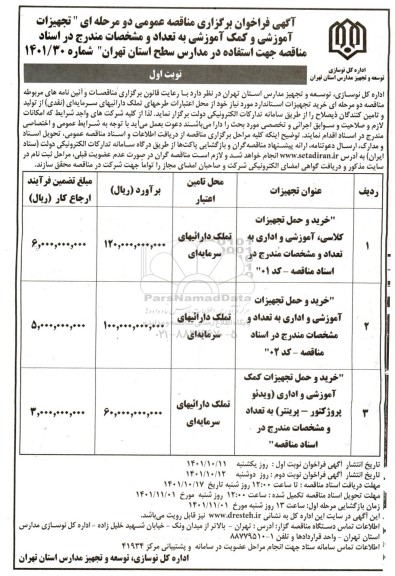 آگهی فراخوان برگزاری مناقصه عمومی دو مرحله ای " تجهیزات
آموزشی و کمک آموزشی به تعداد و مشخصات مندرج در اسناد
مناقصه جهت استفاده در مدارس سطح استان تهران" شماره ۱۴۰۱/۳۰
اداره کل نوسازی
توسعه و تجهیز مدارس استان تهران
نوبت اول
اداره کل نوسازی، توسعه و تجهیز مدارس استان تهران در نظر دارد با رعایت قانون برگزاری مناقصات و آئین نامه های مربوطه
مناقصه دو مرحله ای خرید تجهیزات استاندارد مورد نیاز خود از محل اعتبارات طرحهای تملک دارائیهای سرمایه‌ای (نقدی) از تولید
و تامین کنندگان ذیصلاح را از طریق سامانه تدارکات الکترونیکی دولت برگزار نماید. لذا از کلیه شرکت های واجد شرایط که امکانات
لازم و صلاحیت و سوابق اجرائی و تخصصی مورد بحث را دارا می‌باشند دعوت بعمل می‌آید با توجه به شرایط عمومی و اختصاصی
مندرج در اسناد اقدام نمایند. توضیح اینکه کلیه مراحل برگزاری مناقصه از دریافت اطلاعات و اسناد مناقصه عمومی، تحویل اسناد
و مدارک، ارسال دعوتنامه، ارائه پیشنهاد مناقصه‌گران و بازگشایی پاکت‌ها از طریق درگاه سامانه تدارکات الکترونیکی دولت (ستاد
ایران) به آدرس www.setadiran.ir انجام خواهد شد و لازم است مناقصه گران در صورت عدم عضویت قبلی، مراحل ثبت نام در
سایت مذکور و دریافت گواهی امضای الکترونیکی شرکت و صاحبان امضای مجاز را تواما جهت شرکت در مناقصه محقق سازند.
ردیف
عنوان تجهیزات
محل تامین اعتبار
برآورد (ریال)
مبلغ تضمین فرآیند ارجاع کار (ریال)
۱
"خرید و حمل تجهیزات
کلاسی، آموزشی و اداری به
تعداد و مشخصات مندرج در
اسناد مناقصه – کد ۰۱"
تملک دارائیهای
سرمایه‌ای
۱۲۰,۰۰۰,۰۰۰,۰۰۰
۶,۰۰۰,۰۰۰,۰۰۰
۲
"خرید و حمل تجهیزات
آموزشی و اداری به تعداد و
مشخصات مندرج در اسناد
مناقصه – کد ۰۲"
تملک دارائیهای
سرمایه‌ای
۱۰۰,۰۰۰,۰۰۰,۰۰۰
۵,۰۰۰,۰۰۰,۰۰۰
۳
"خرید و حمل تجهیزات کمک
آموزشی و اداری (ویدئو
پروژکتور – پرینتر) به تعداد
و مشخصات مندرج در
اسناد مناقصه"
تملک دارائیهای
سرمایه‌ای
۶۰,۰۰۰,۰۰۰,۰۰۰
۳,۰۰۰,۰۰۰,۰۰۰
تاریخ انتشار آگهی فراخوان نوبت اول : روز یکشنبه ۱۴۰۱/۱۰/۱۱
تاریخ انتشار آگهی فراخوان نوبت دوم : روز دوشنبه ۱۴۰۱/۱۰/۱۲
مهلت دریافت اسناد مناقصه : تا ساعت ۱۲:۰۰ روز شنبه تاریخ ۱۴۰۱/۱۰/۱۷
مهلت تحویل اسناد مناقصه تکمیل شده : ساعت ۱۲:۰۰ روز شنبه مورخ ۱۴۰۱/۱۱/۰۱
زمان بازگشایی مرحله اول: روز شنبه مورخ ۱۴۰۱/۱۱/۰۱
. این آگهی در سایت این اداره کل به نشانی www.dresteh.ir نیز قابل رویت می‌باشد.
اطلاعات تماس دستگاه مناقصه گزار: آدرس : تهران – بالاتر از میدان ونک – خیابان شهید خلیل زاده – اداره کل نوسازی مدارس
استان تهران – واحد قراردادها و تلفن ۱-۸۸۷۷۹۵۱۰
اطلاعات تماس سامانه ستاد جهت انجام مراحل عضویت در سامانه و پشتیبانی مرکز ۴۱۹۳۴
اداره کل نوسازی، توسعه و تجهیز مدارس استان تهران
ParsNamadData